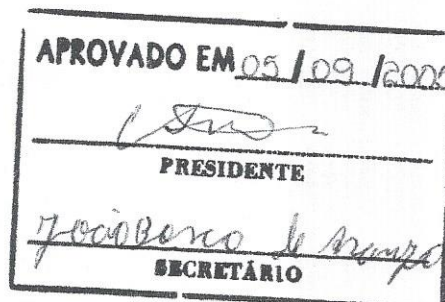 APROVADO EM 05/09/200
PRESIDENTE
João Bosco de
SECRETÁRIO